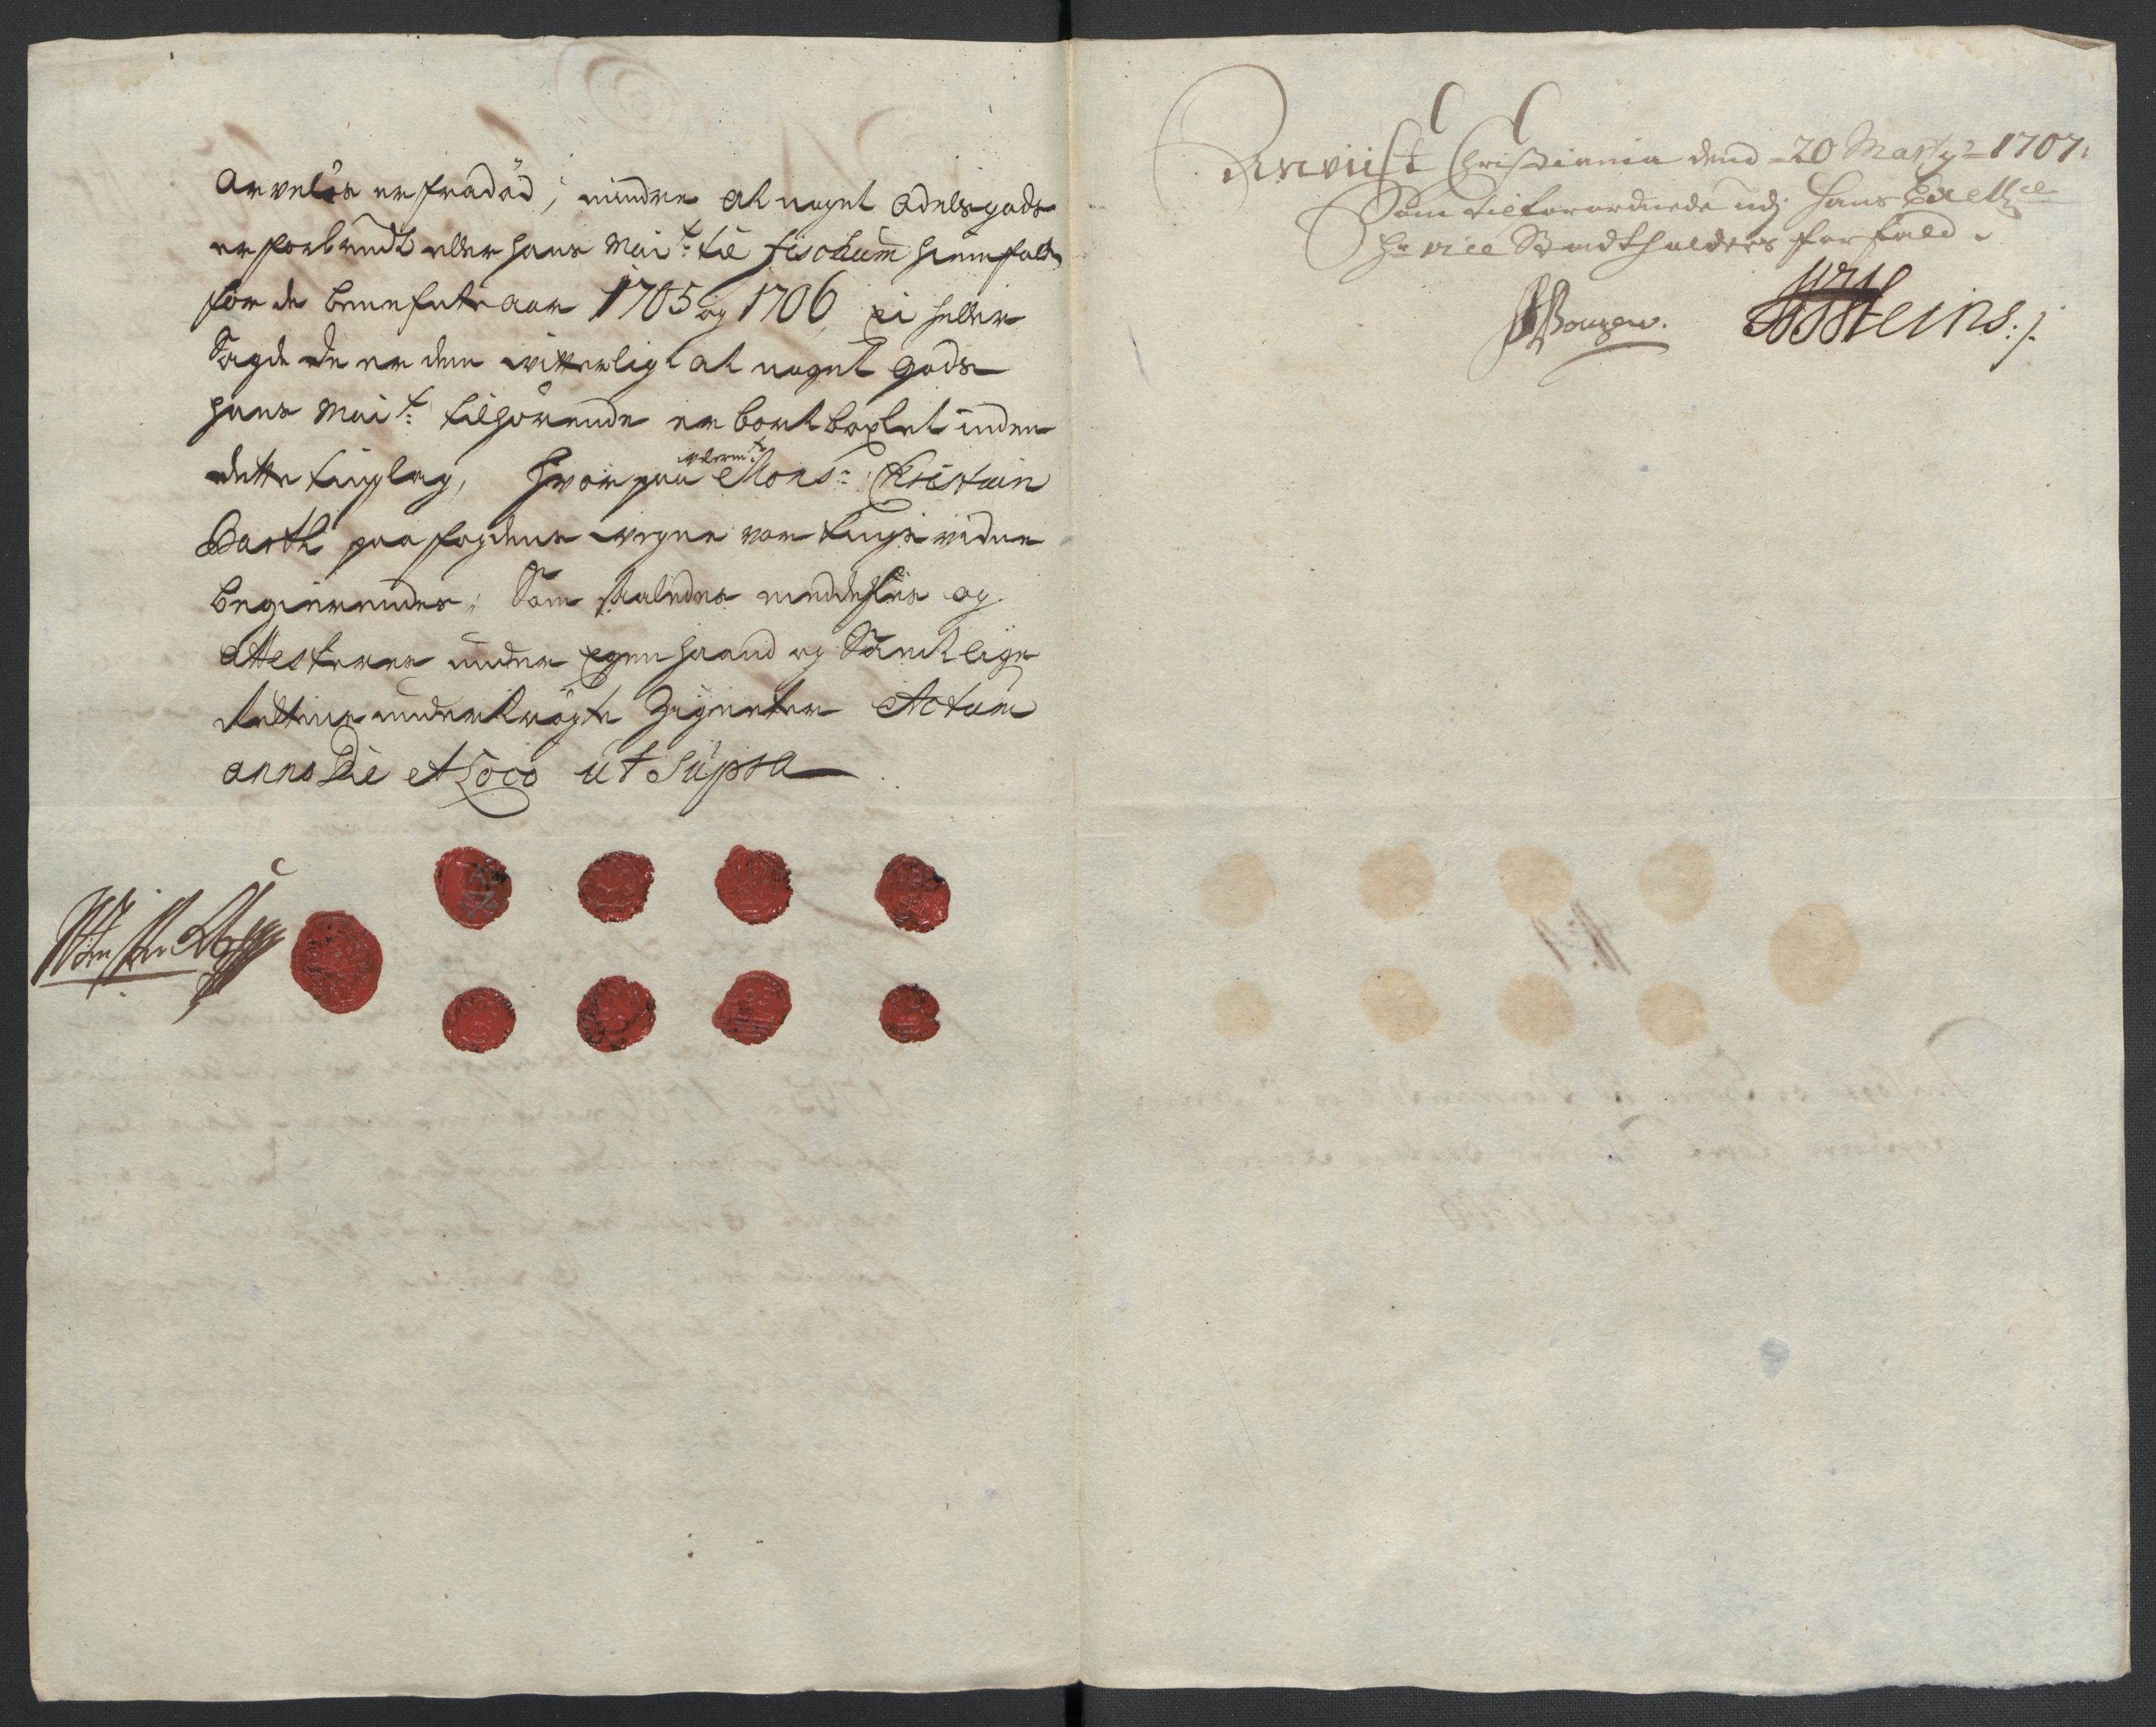 Arveløs er fradød, mindre at noget Odelsgods
er forbrudt eller hans Mai:t til fischum hiemfalden
for de benefnte aar 1705 og 1706, ei heller
Sagde de er dem witterligt at noget gods
hans Mai:t tilhørende er bortbøxlet inden
dette tinglag, Hvor paa Mons:r Christian
Barth paa fogdens wegne var tings vidne
begierendes, Som saaledes meddeles og
attesteres under egen haand og Samtlige
Rettens undertrøgte Zigneter Actum
anno Die et Loco ut Supra
Anviist Christiania dend 20 Marty 1707.
Som tilforordnede udj Hans Excellce
Hr vice Stadtholders forfald.